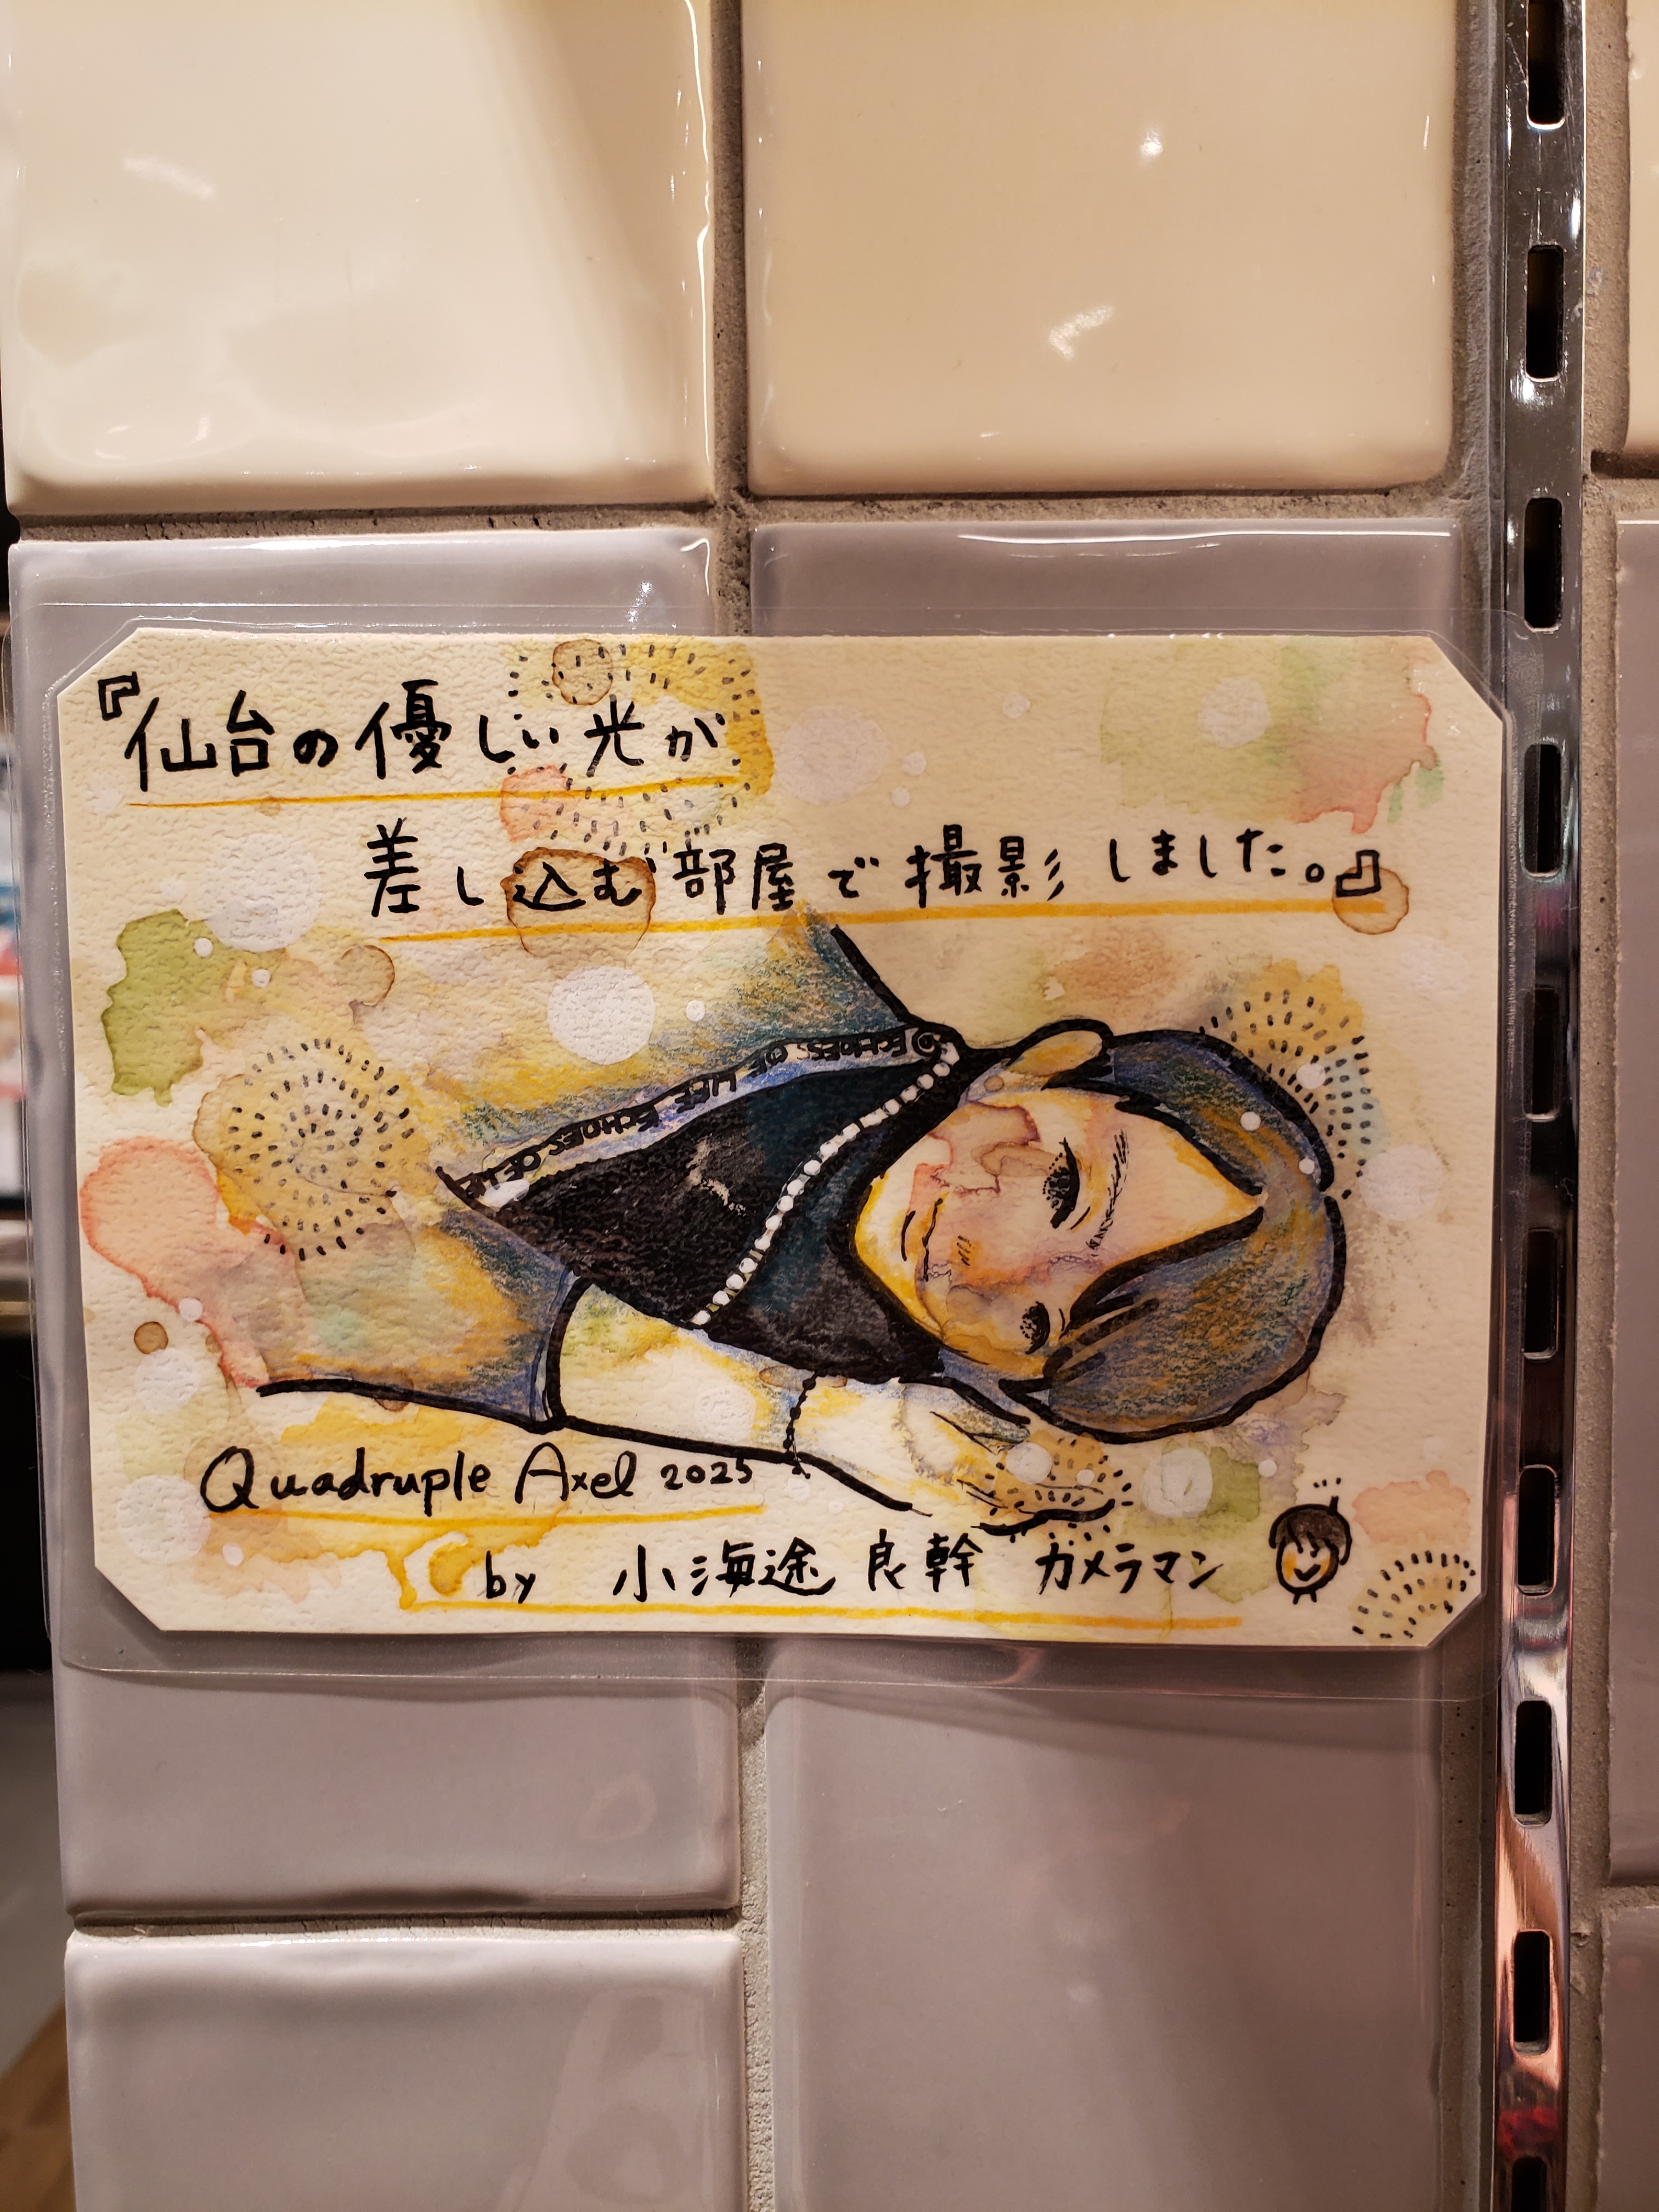 『仙台の優しい光が
差し込む部屋で撮影しました。』
ECHOES OF LIFE ECHOES OF LIFE ECHOES O
Quadruple Axel 2025
by 小海途 良幹 カメラマン